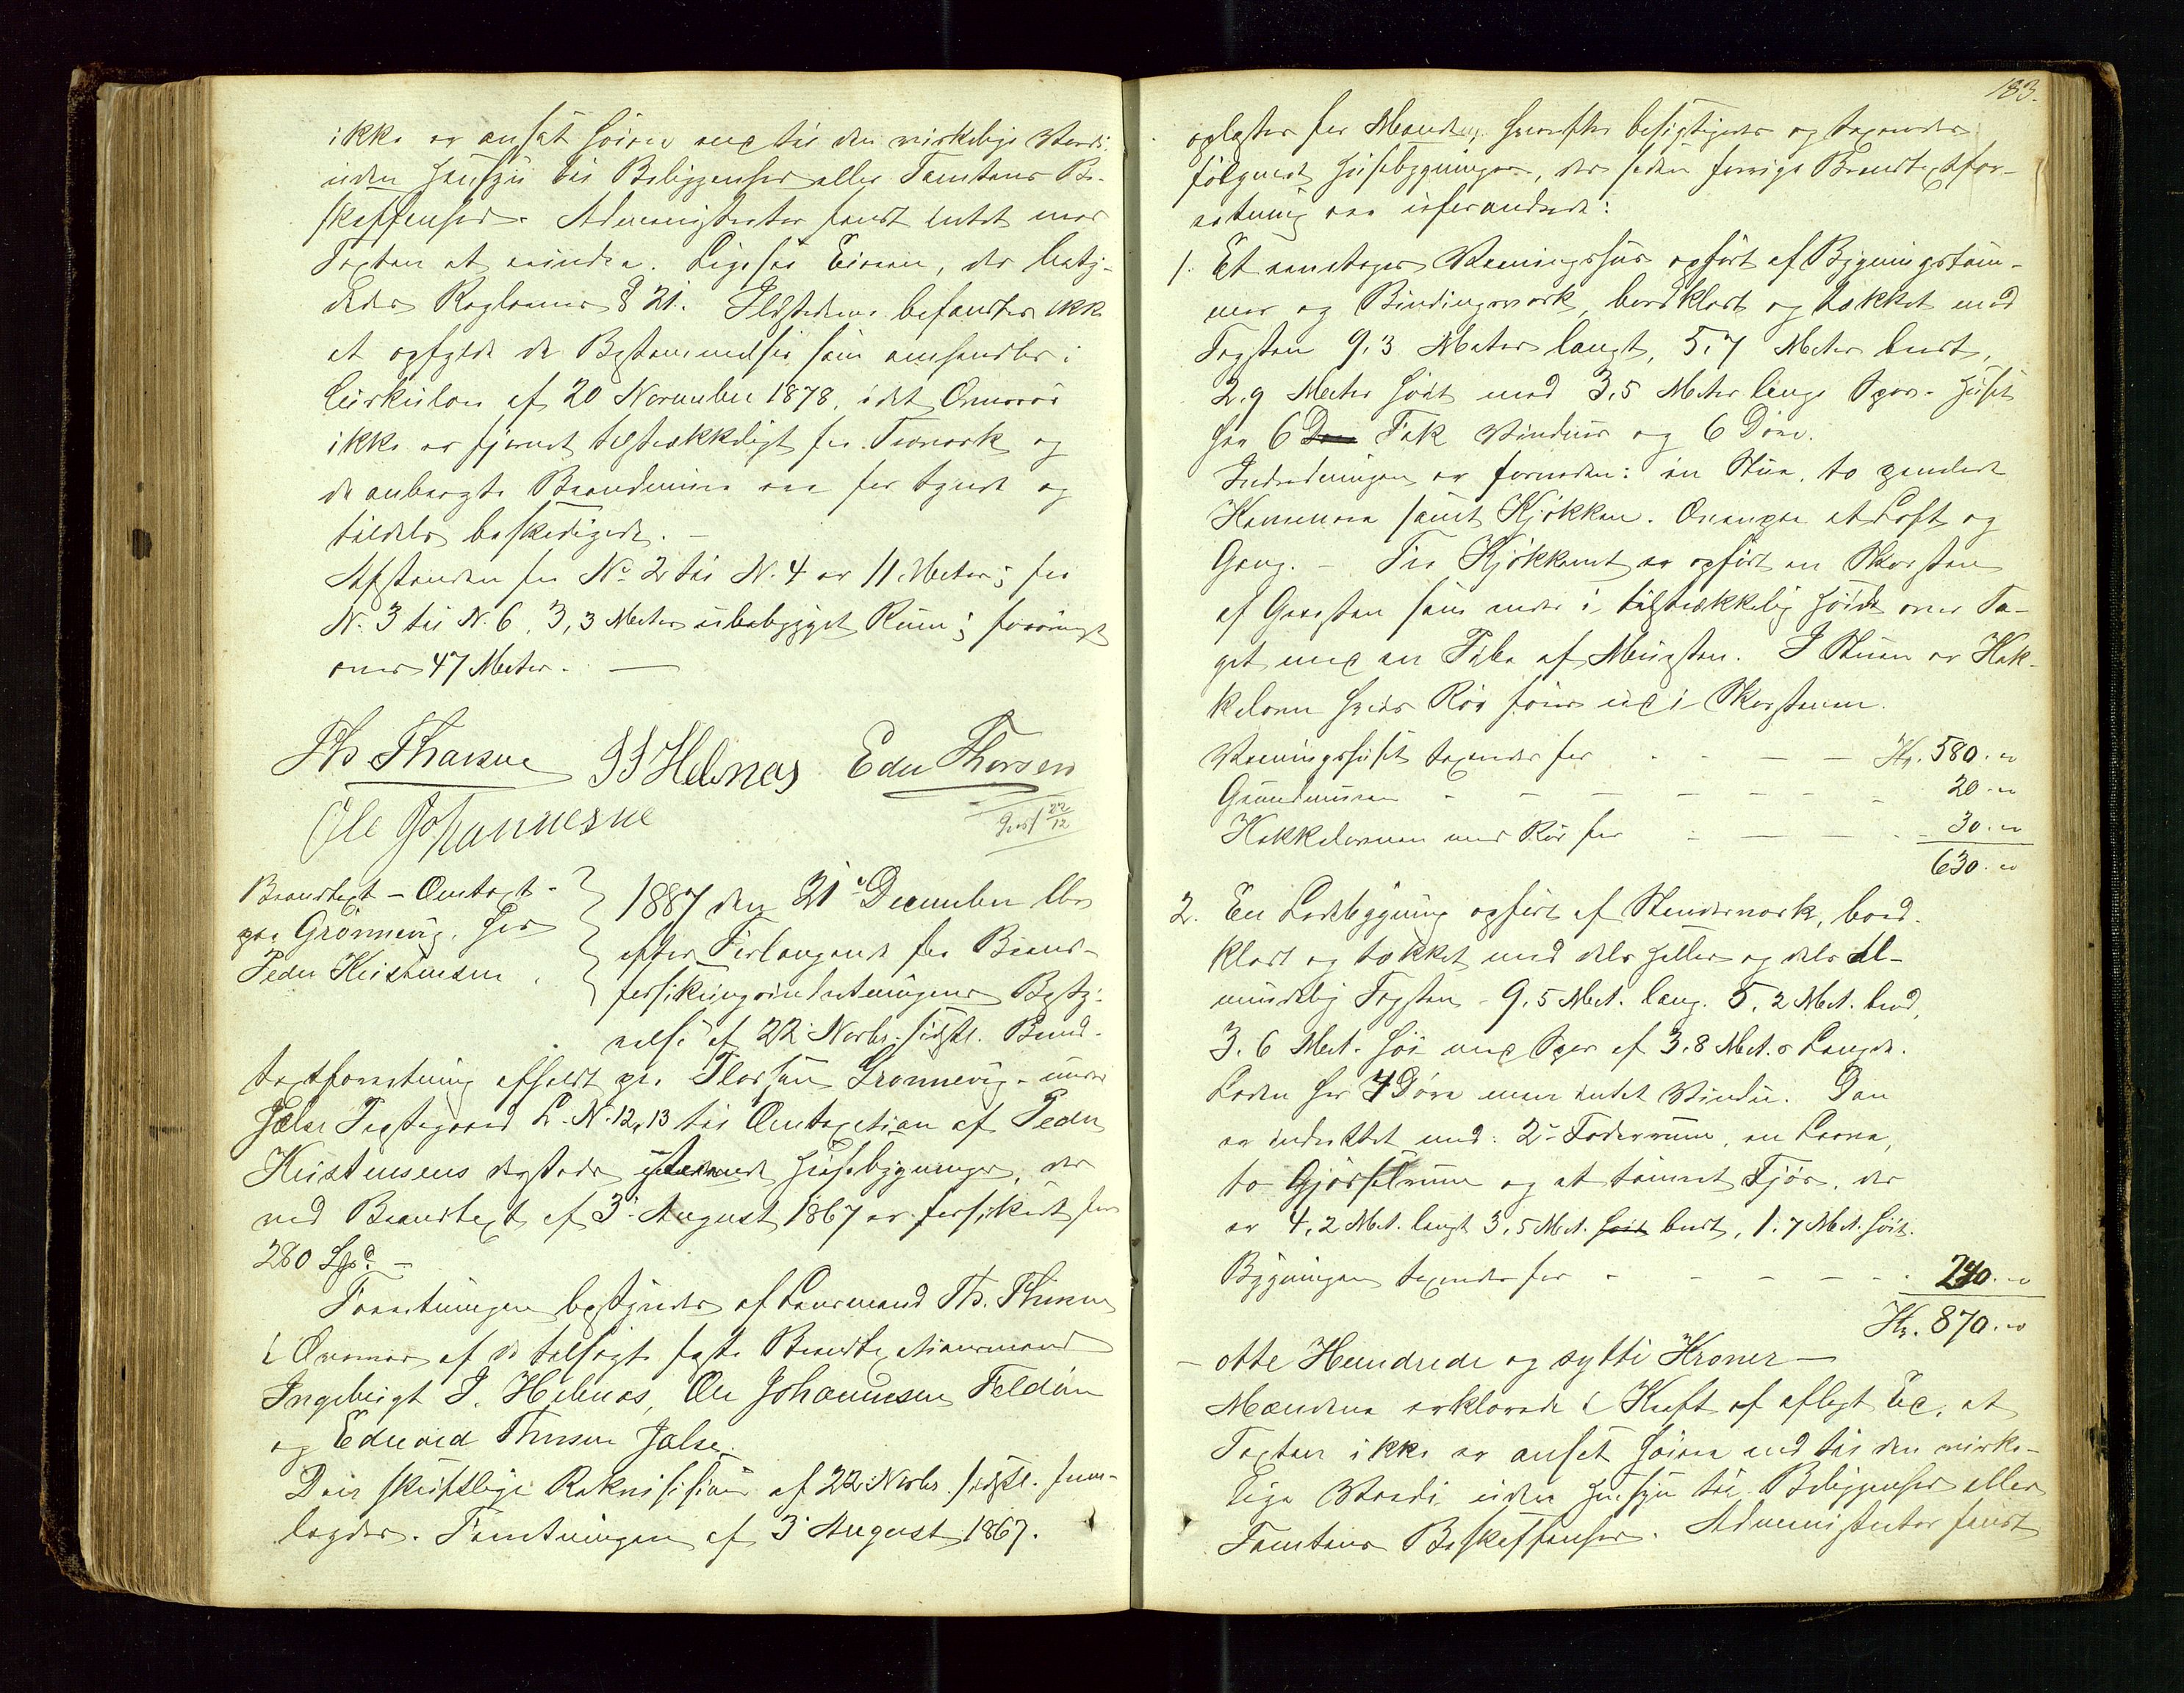 ikke er ansat høiere end til den virkelige Værdi
uden Hensyn til Beliggenhed eller Tomtens Be-
skaffenhed. Administrator fandt intet mod
Taxten at erindre. Ligesaa Eieren, der betyd-
edes Reglernes § 21. Ildstederne befandtes ikke
at opfylde de Bestemmelser som omhandles i
Cirkulær af 20 November 1878, idet Ovnrør
ikke er fjernet tilstrækkeligt fra Træværk og
de anbragte Brandmure ere for tynde og
tildels beskadigede. –
Afstanden fra No 2 til N. 4 er 11 Meter; fra
N. 3 til N. 6, 3,3 Meter ubebygget Rum; forøvrigt
over 47 Meter. —
Th Thorsne I I Helnæs Edv Thorsen
Ole Johannesne
22/12
Brandtaxt – Omtaxt –
paa Grønnevig, hos
Peder Kristensen.
1887 den 21de December blev
efter Forlangende fra Brand-
forsikringsindretningens Besty-
relse af 22 Novbr. sidstl. Brand-
taxtforretning afholdt paa Pladsen Grønnevig – under
Jælse Præstegaard L. N. 12, 13 til Omtaxation af Peder
Kristensens dersteds Husebygninger, der
ved Brandtaxt af 3 August 1867 er forsikret for
280 Spd. –
Forretningen bestyredes af Lensmand Th. Thorsne
i Overvær af de tilsagte faste Brandtaxationsmænd
Ingebrigt I. Helnæs, Ole Johannesen Feldøen
og Edvard Thorsen Jælse.
Den skriftlige Rekvisition af 22 Novbr. sidstl. frem-
lagdes. Forretningen af 3 August 1867.
183.
oplæstes for Mændene, hvorefter besigtigedes og taxeredes
følgende Husebygninger, der siden forrige Brandtaxtfor-
retning ere uforandrede:
1. Et eenetages Vaaningshus opført af Bygningstøm-
mer og Bindingsværk, bordklædt og tækket med
Tagsten 9,3 Meter langt, 5,7 Meter bredt,
2,9 Meter høit med 3,5 Meter lange Sper. Huset
har 6 Fak Vinduer og 6 Døre.
Indredningen er forneden: en Stue, to panelede
Kamrene samt Kjøkken. Ovenpaa et Loft og
Gang. – Fra Kjøkkenet er opført en Skorsten
af Graasten som ender i tilstrækkelig Høide over Ta-
get med en Pibe af Mursten. I Stuen er Kak-
kelovn hvis Rør føres ud i Skorstenen.
Vaaningshuset taxeredes for – – – Kr. 580. "
Grundmuren – – – – – – 20. "
Kakkelovnen med Rør for – – – 30. "
630. "
2. En Ladebygning opført af Stenderværk, bord-
klædt og tækket med dels Heller og dels al-
mindelig Tagsten – 9,5 Met. lang, 5,2 Met. bred,
3,6 Met. høi med Sper af 3,8 Met.s Længde.
Laden har 4 Døre men intet Vindu. Den
er indrettet med: 2de Foderrum, en Laave,
to Gjødselrum og et tømret Fjøs, der
er 4,2 Met. langt 3,5 Met. bredt, 1,7 Met. høit.
Bygningen taxeredes for – – – – 240. "
Kr. 870. "
– otte Hundrede og sytti Kroner –
Mændene erklærede i Kraft af aflagt Ed, at
Taxten ikke er ansat høiere end til den virke-
lige Værdi uden Hensyn til Beliggenhed eller
Tomtens Beskaffenhed. Administrator fandt